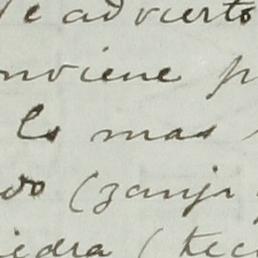 Te advierto
nviene p
lo mas
do (zanja
iedra (tec